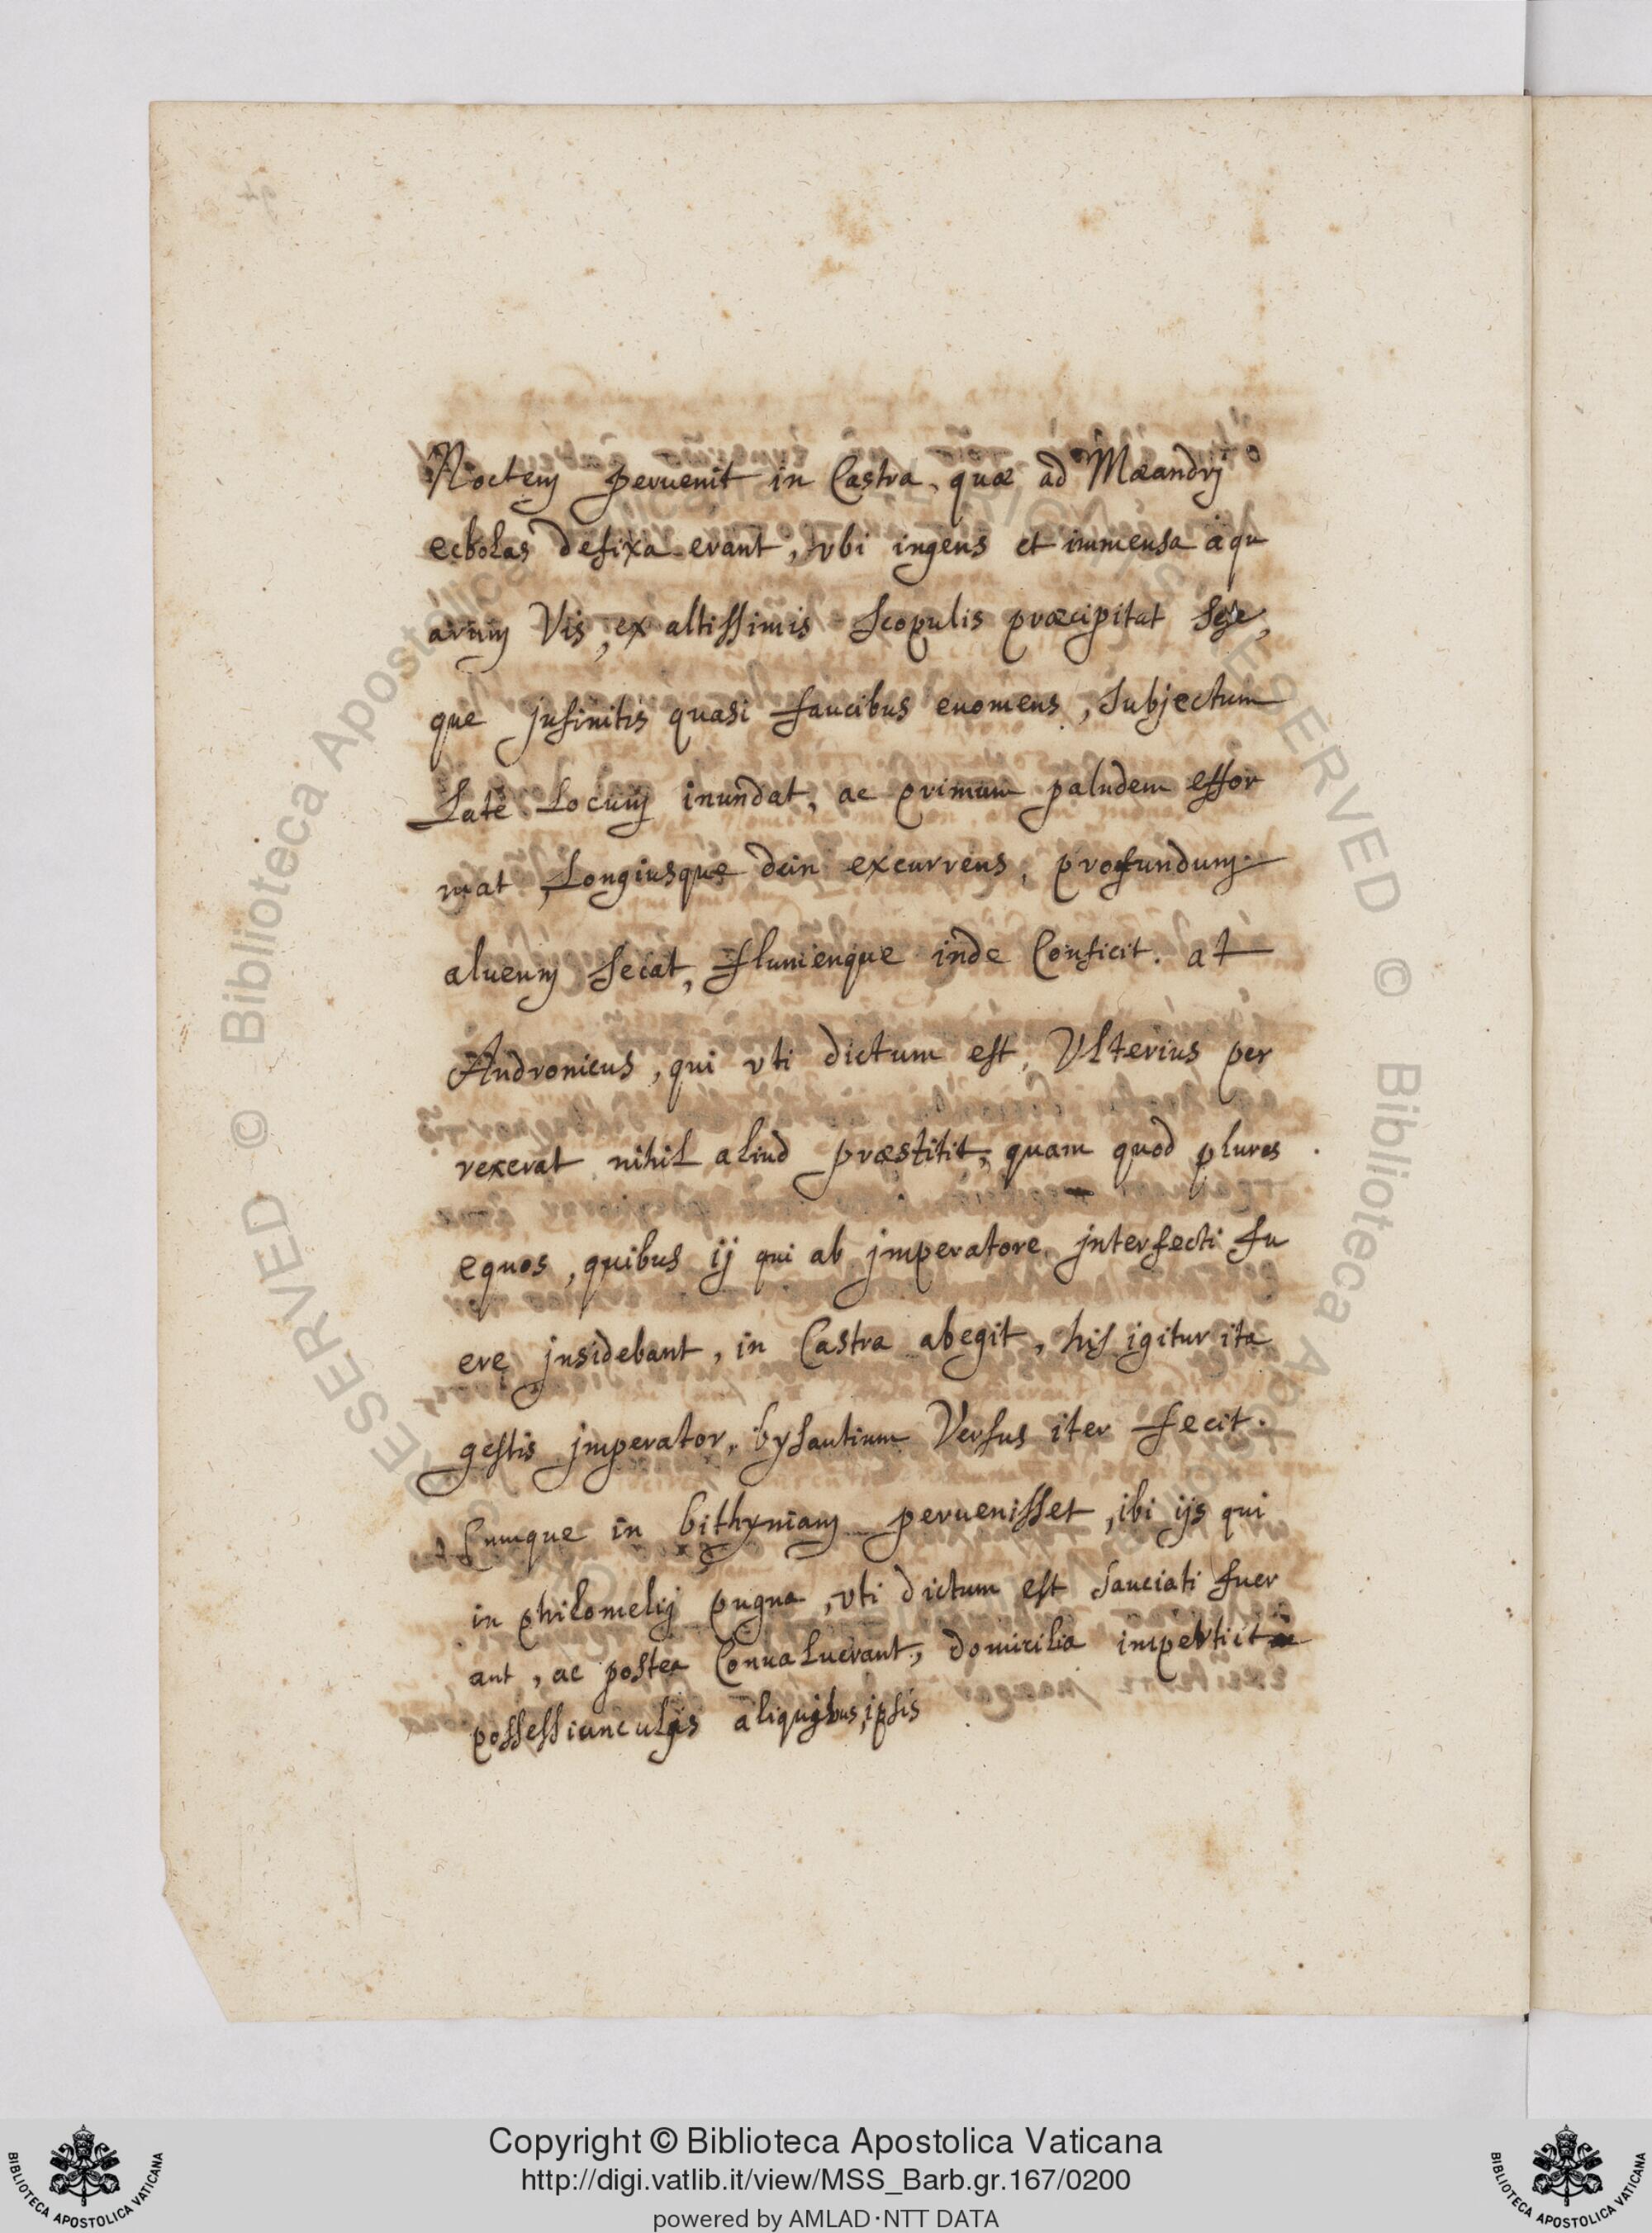 Noctem peruenit in Castra, quæ ad Mæandrj
ecbolas defixa erant, vbi ingens et immensa aqu
arum Vis, ex altissimis Scopulis præcipitat sese,
que jnfinitis quasi faucibus euomens, Subjectum
Late Locum inundat, ac primum paludem effor
mat, Longiusque dein excurrens, profundum
alueum Secat, flumenque inde Conficit. at
Andronicus, qui vti dictum est, Vlterius per
rexerat nihil aliud præstitit, quam quod plures
equos, quibus ij qui ab jmperatore jnterfecti fu
ere jnsidebant, in Castra abegit, his igitur ita
gestis jmperator, bysantium Versus iter fecit.
Cumque in bithyniam peruenisset, ibi ijs qui
in philomelij pugna, vti dictum est Sauciati fuer
ant, ac postea Conualuerant, domicilia impertiit
possessiunculis aliquibus, ipsis
Copyright © Biblioteca Apostolica Vaticana
http://digi.vatlib.it/view/MSS_Barb.gr.167/0200
powered by AMLAD·NTT DATA